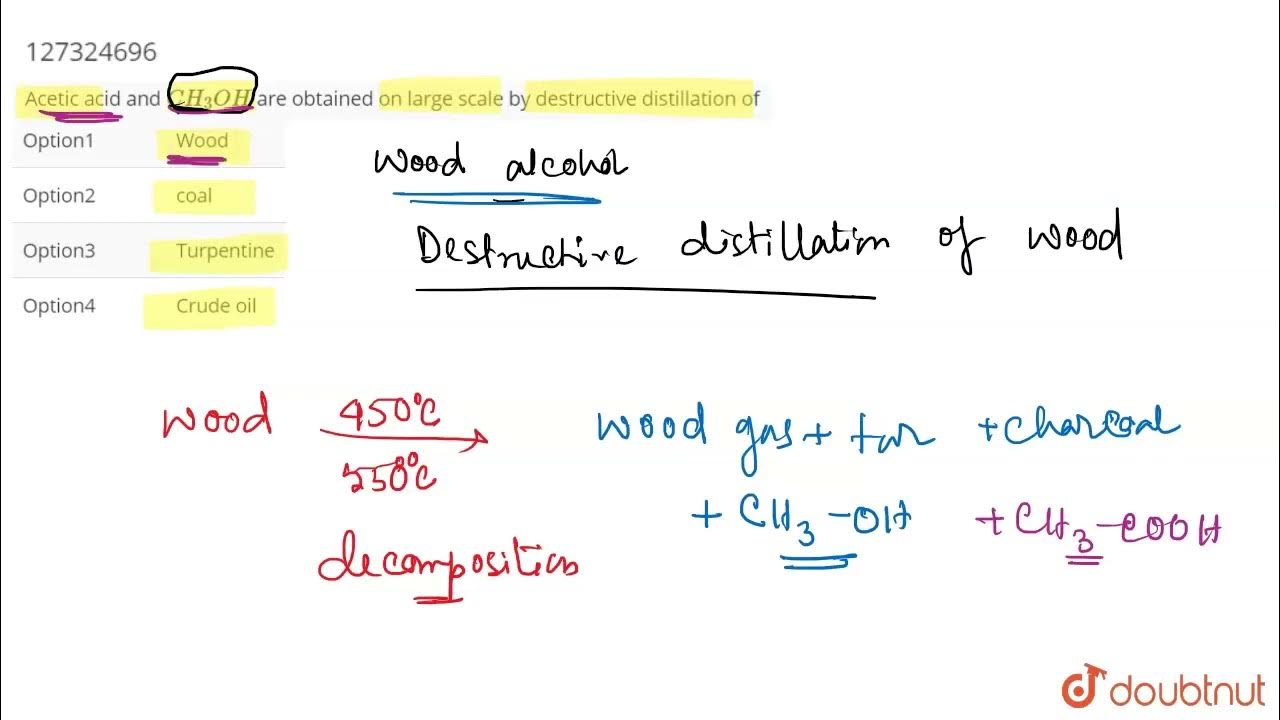 127324696
Acetic acid and CH₃OH are obtained on large scale by destructive distillation of
Option1 Wood
Option2 coal
Option3 Turpentine
Option4 Crude oil
Wood alcohol
Destructive distillation of wood
wood 450°C 550°C wood gas + tar + charcoal
+ CH₃-OH + CH₃-COOH
decomposition
doubtnut